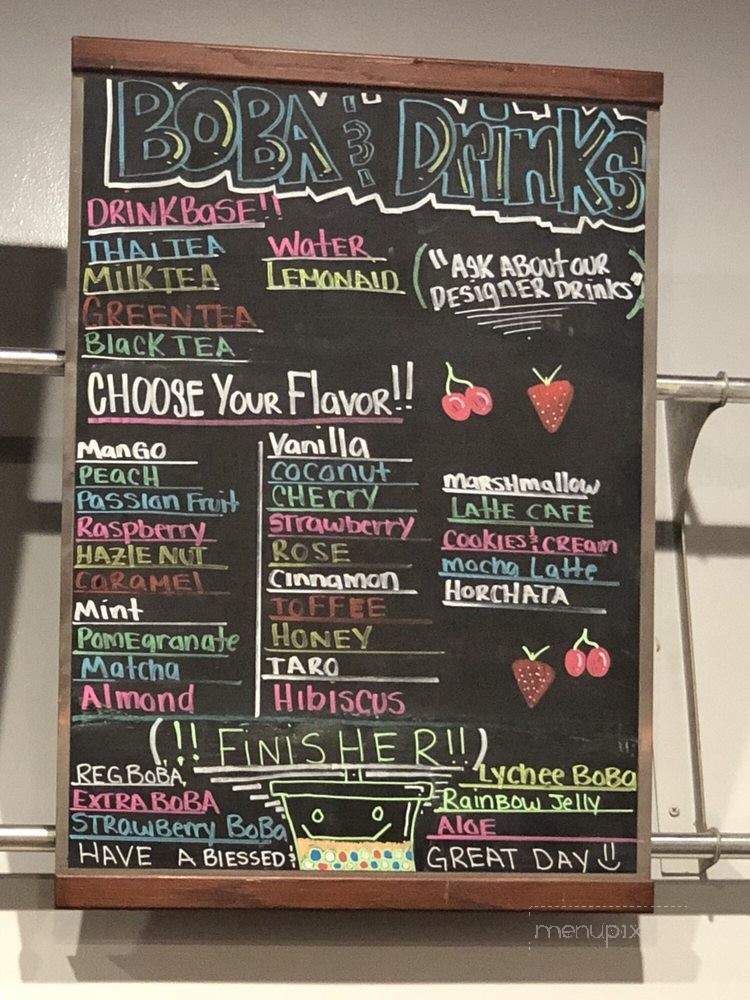 BOBA & Drinks
DRINK BASE!!
THAI TEA
MILK TEA
GREEN TEA
BLACK TEA
Water
LEMONAID
("ASK ABOUT OUR
DESIGNER DRINKS")
CHOOSE YOUR Flavor!!
Mango
PEACH
Passion Fruit
Raspberry
HAZLE NUT
CARAMEl
Mint
POMEgranate
Matcha
Almond
Vanilla
coconut
CHERRY
STrawberry
ROSE
Cinnamon
TOFFEE
HONEY
TARO
HIBISCUS
marshmallow
LATTE CAFE
COOKIES & CREam
mocha Latte
HORCHATA
(!! FINISHER!!)
REG BOBA
EXTRA BOBA
STRAWberry BoBa
Lychee BoBa
RainBow Jelly
AlOE
HAVE A BLESSED &
GREAT DAY
menupix